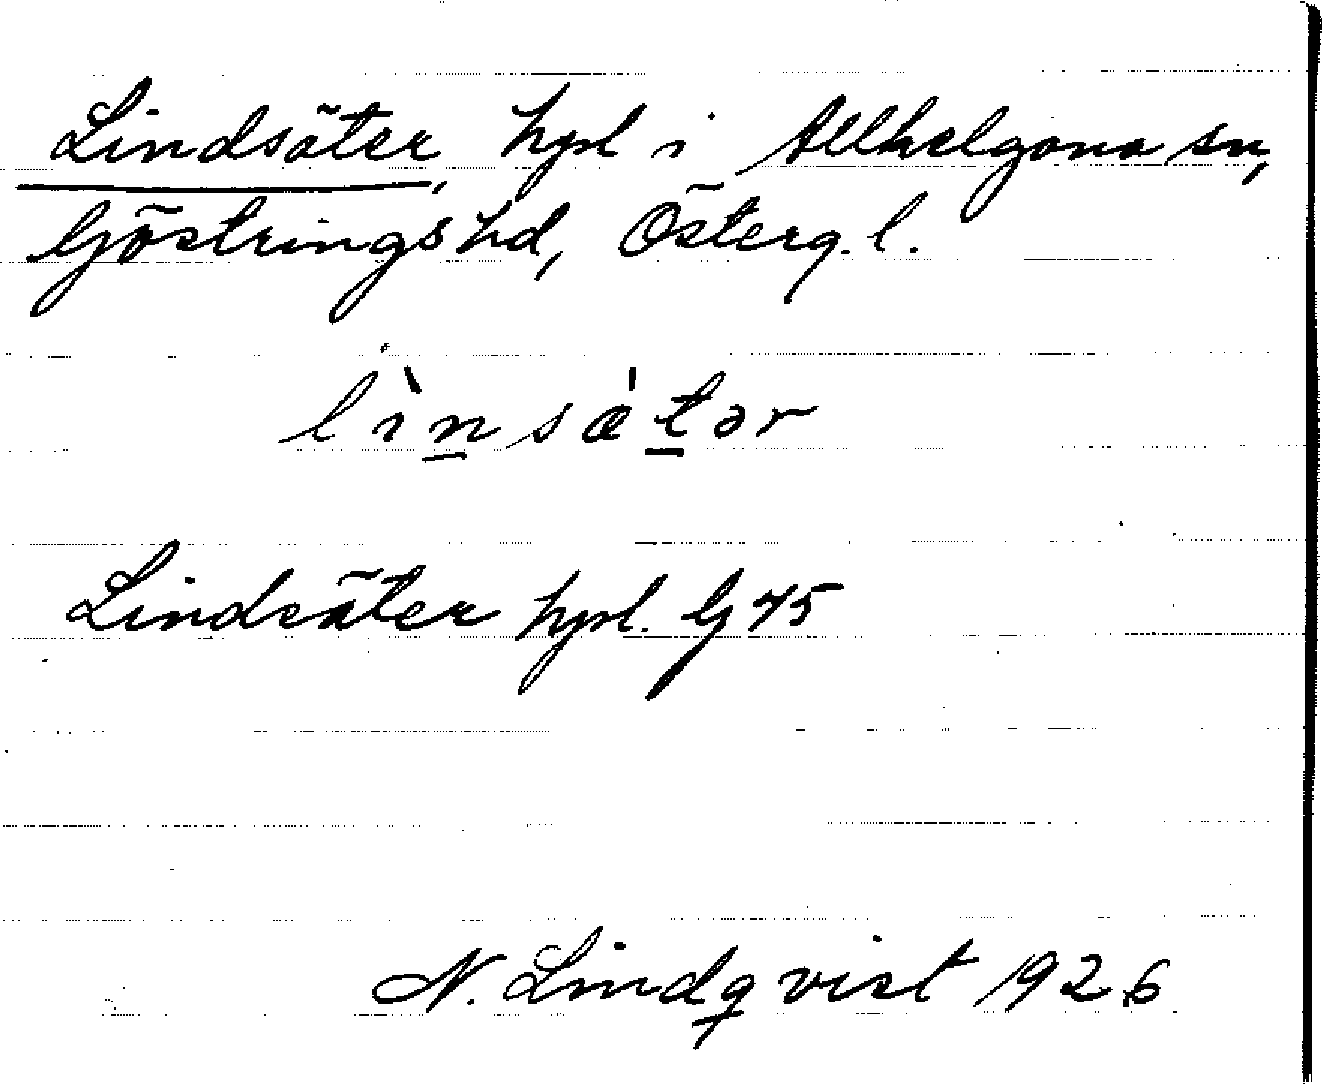 Lindsäter, hpl i Allhelgona sn,
Göstrings hd, Österg. l.
lìnsǽtər
Lindsäter hpl. G 75
N. Lindqvist 1926